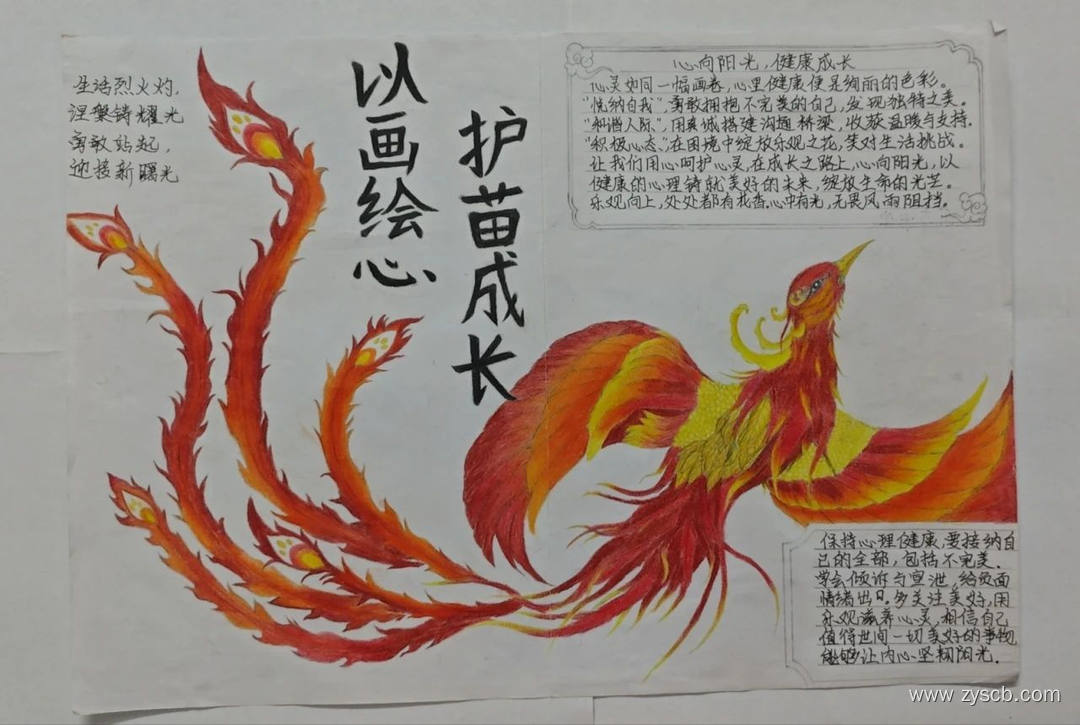 生活烈火灼,
涅槃铸耀光
勇敢站起,
迎接新曙光
以画绘心
护苗成长
心向阳光,健康成长
心灵如同一幅画卷,心里健康便是绚丽的色彩。
"悦纳自我",勇敢拥抱不完美的自己,发现独特之美。
"和谐人际",用真诚搭建沟通桥梁,收获温暖与支持。
"积极心态",在困境中绽放乐观之花,笑对生活挑战。
让我们用心呵护心灵,在成长之路上,心向阳光,以
健康的心理铸就美好的未来,绽放生命的光芒。
乐观向上,处处都有花香.心中有光,无畏风雨阻挡.
保持心理健康,要接纳自
己的全部,包括不完美.
学会倾诉与宣泄,给负面
情绪出口.多关注美好,用
乐观滋养心灵,相信自己
值得世间一切美好的事物
能够让内心坚韧阳光.
www.zyscb.com